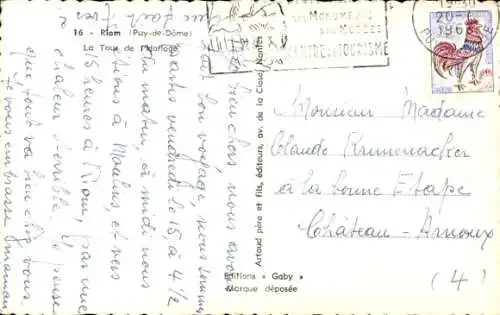 16 - Riom (Puy-de-Dôme)
La Tour de l'Horloge
ses Monuments
ses Musées
CENTRE de TOURISME
19
20-7
196
bien chers nous avons
fait bon voyage nous sommes
partis vendredi le 15, à 4 1/2
du matin, à midi nous
étions à Moulins, et vers
15 heures à Riom, par une
chaleur terrible. Je pense
que tout va bien chez vous.
Je vous embrasse maman
Artaud père et fils, éditeurs, av. de la Close, Nantes
Editions « Gaby »
Marque déposée
Monsieur Madame
Claude
à la bonne Etape
Château-Arnoux
(4)